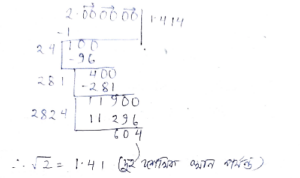 2.00 00 00 | 1.414
-1
24 | 100
-96
281 | 400
-281
2824 | 11900
11296
604
∴ √2 = 1.41 (দুই দশমিক স্থান পর্যন্ত)